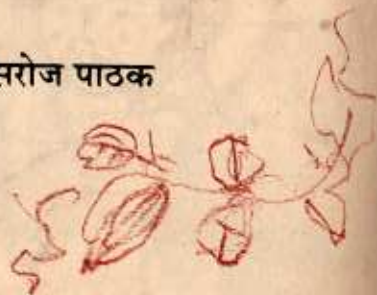 सरोज पाठक